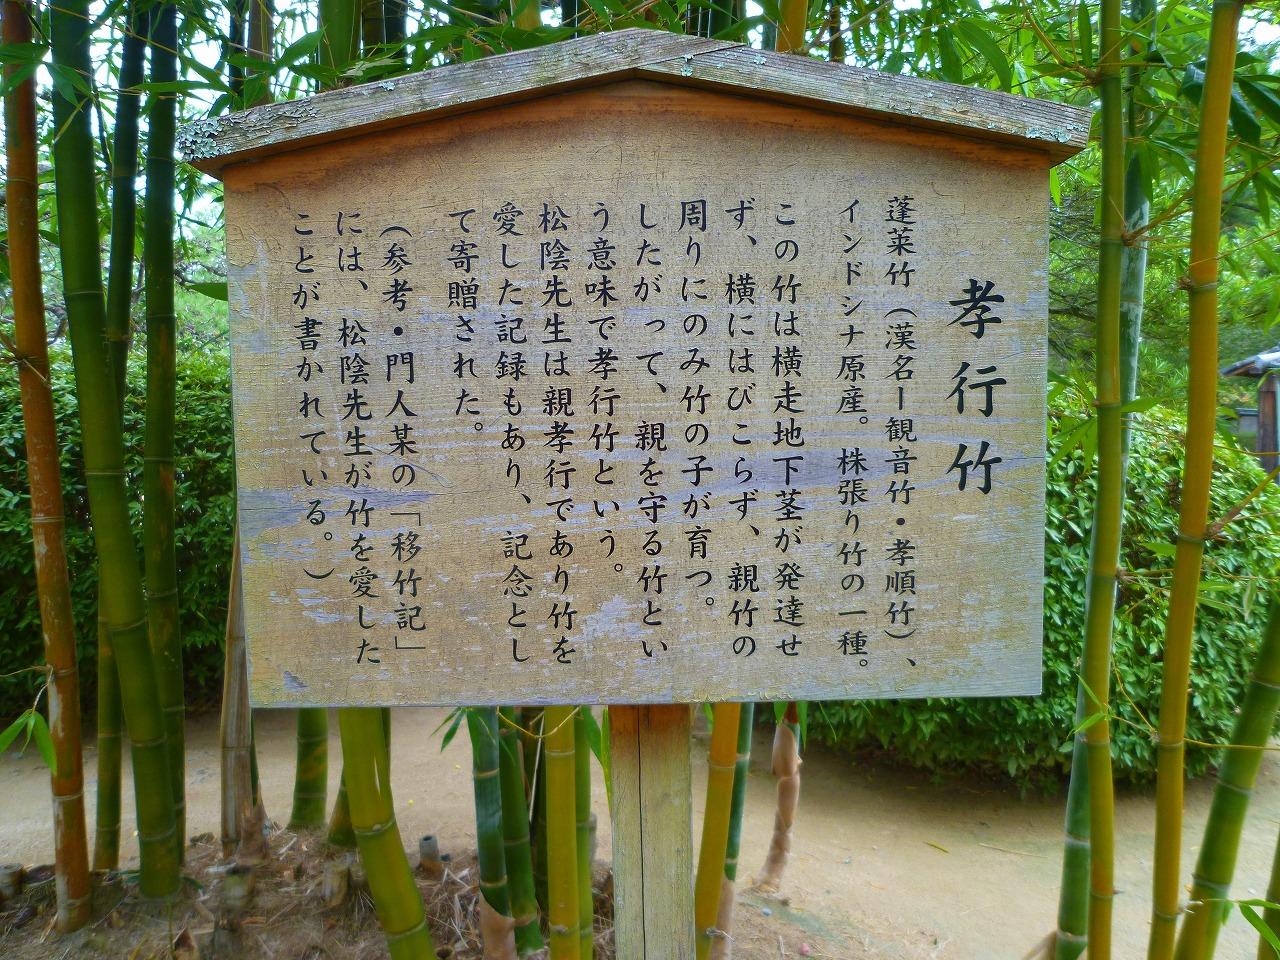 孝行竹
蓬莱竹（漢名ー観音竹・孝順竹）、
インドシナ原産。株張り竹の一種。
この竹は横走地下茎が発達せ
ず、横にはびこらず、親竹の
周りにのみ竹の子が育つ。
したがって、親を守る竹とい
う意味で孝行竹という。
松陰先生は親孝行であり竹を
愛した記録もあり、記念とし
て寄贈された。
（参考・門人某の「移竹記」
には、松陰先生が竹を愛した
ことが書かれている。）